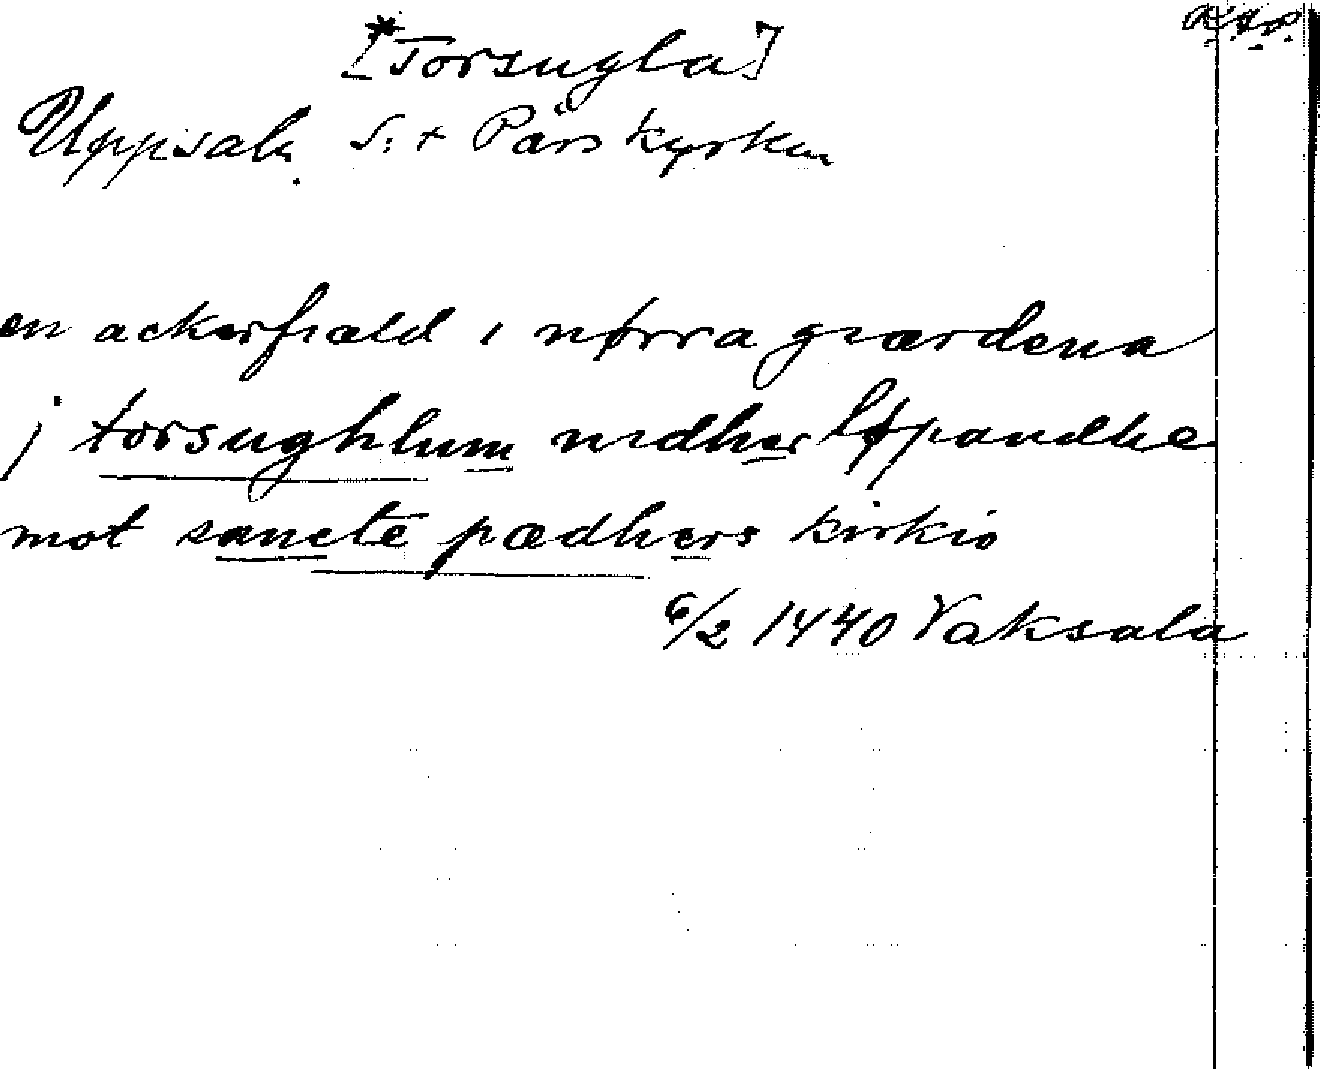 *[Torsugla]
Uppsala. S:t Pärs kyrkan
en ackerfiæld i nørra giærdena
j torsughlum nidher løpandhe
mot sancte pædhers kirkio
6/2 1440 Vaksala